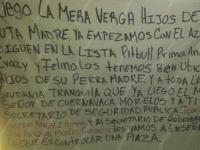 LLEGO LA MERA VERGA HIJOS DE
PUTA MADRE, YA EMPEZAMOS CON EL AZ
SIGUEN EN LA LISTA Pitbull Prima An
Crazy y Felino LOS TENEMOS BIEN UBIC
HIJOS DE SU PERRA MADRE, Y A TODA L
UDADANIA TRANQUILA QUE YA LLEGO EL M
SEÑOR DE CUERNAVACA MORELOS Y A TI
SECRETARIO DE SEGURIDAD PUBLICA
SECRETARIO DE GOBIER
LES VAMOS A ENSEÑ
QUE ES CONTROLAR UNA PLAZA.